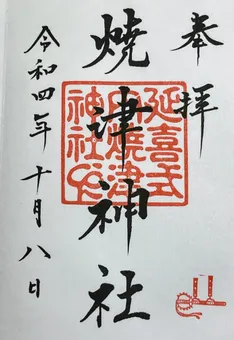 奉拝
燒津神社
延喜式
内焼津
神社印
令和四年十月八日